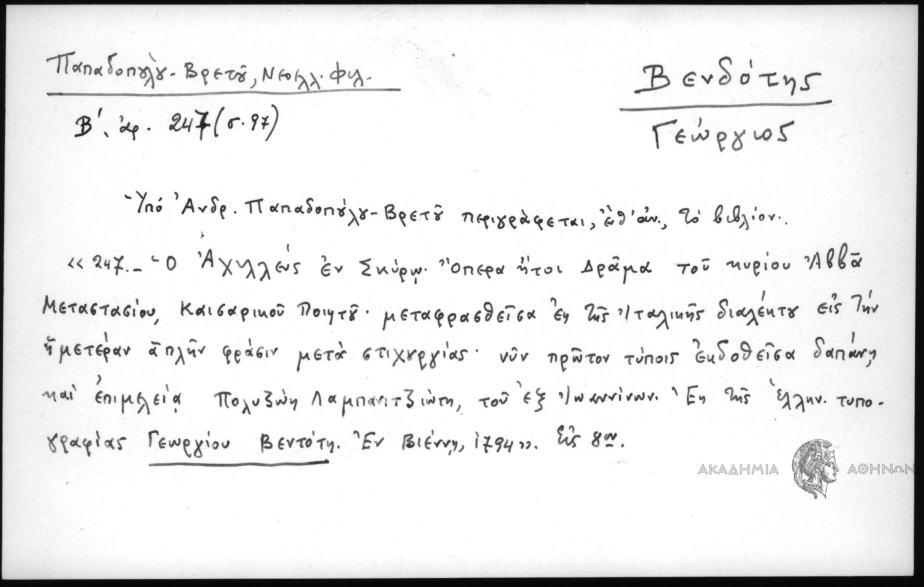 Παπαδοπούλου-Βρετοῦ, Νεοελλ. Φιλ.
Βενδότης
Β΄. ἀρ. 247 (σ. 97)
Γεώργιος
Ὑπό Ἀνδρ. Παπαδοπούλου-Βρετοῦ περιγράφεται, ἔνθ' ἀν., τὸ βιβλίον.
«247.- Ὁ Ἀχιλλεύς ἐν Σκύρῳ. Ὄπερα ἤτοι Δρᾶμα τοῦ κυρίου Ἀββᾶ
Μεταστασίου, Καισαρικοῦ Ποιητοῦ· μεταφρασθεῖσα ἐκ τῆς Ἰταλικῆς διαλέκτου εἰς τήν
ἡμετέραν ἁπλῆν φράσιν μετὰ στιχουργίας· νῦν πρῶτον τύποις ἐκδοθεῖσα δαπάνῃ
καὶ ἐπιμελείᾳ Πολυζώη Λαμπανιτζιώτη, τοῦ ἐξ Ἰωαννίνων. Ἐκ τῆς ἑλλην. τυπο-
γραφίας Γεωργίου Βεντότη. Ἐν Βιέννῃ, 1794». Εἰς 8ον.
ΑΚΑΔΗΜΙΑ ΑΘΗΝΩΝ